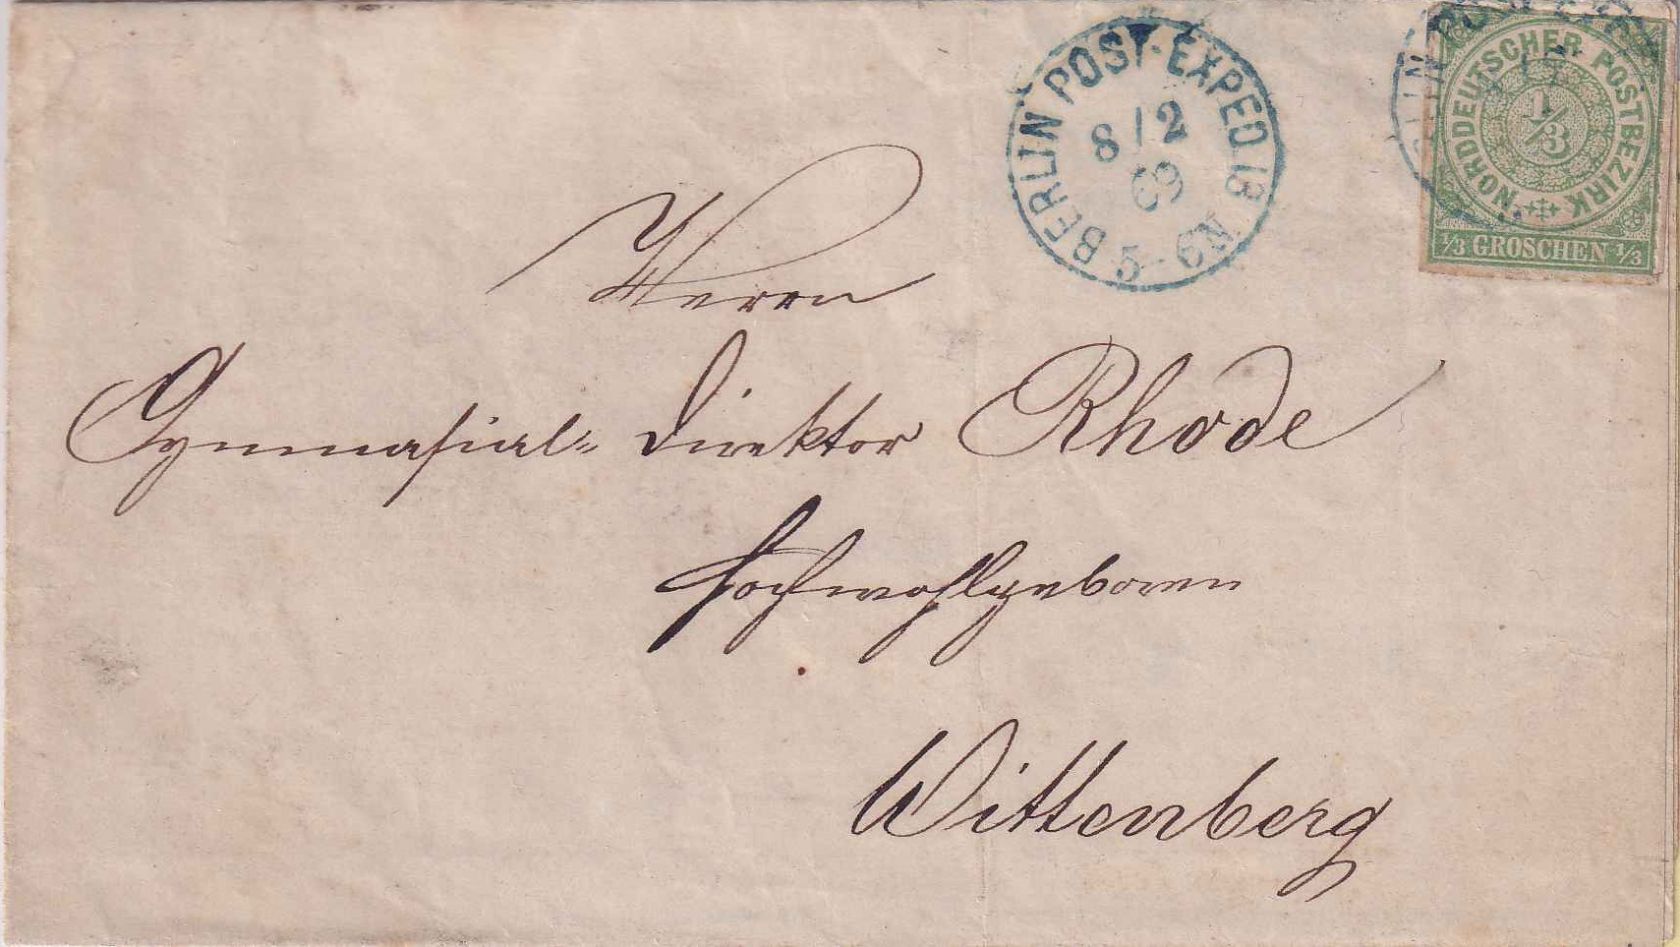 BERLIN POST-EXPED. 13
8/2
69
5-6N
NORDDEUTSCHER POSTBEZIRK
1/3
1/3 GROSCHEN 1/3
Herrn
Gymnasial-Direktor Rhode
Hochwohlgeboren
Wittenberg